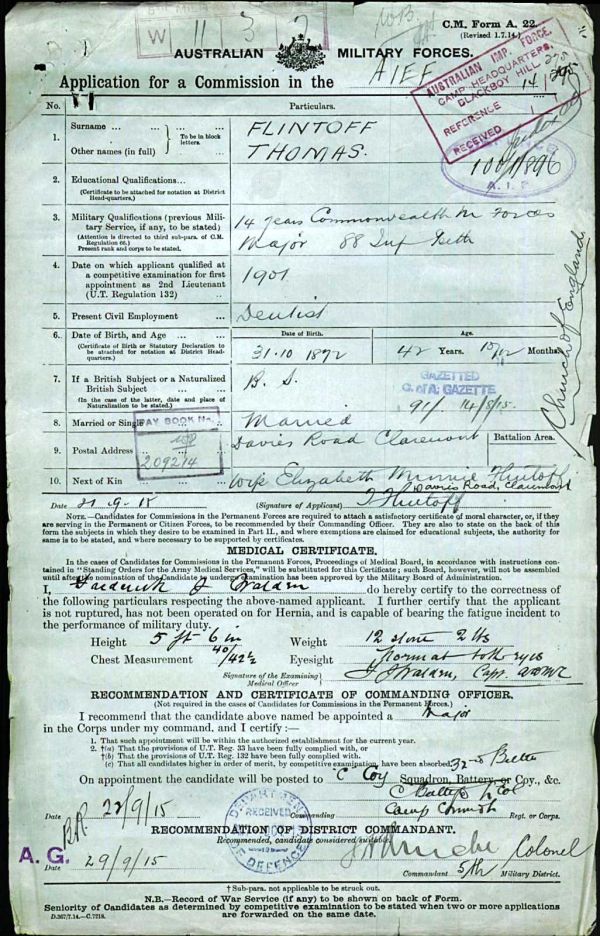 C.M. Form A. 22.
(Revised 1.7.14.)
W 11 3
AUSTRALIAN MILITARY FORCES.
Application for a Commission in the AIEF
AUSTRALIAN IMP. FORCE.
CAMP HEADQUARTERS,
BLACKBOY HILL
REFERENCE
RECEIVED
A.I.F.
No. Particulars.
1. Surname ... ... To be in block letters. FLINTOFF
Other names (in full) THOMAS.
2. Educational Qualifications...
(Certificate to be attached for notation at District Head-quarters.)
3. Military Qualifications (previous Military Service, if any, to be stated) 14 years Commonwealth M Forces
(Attention is directed to third sub-para. of C.M. Regulation 66.)
Present rank and corps to be stated. Major 88 Inf Bttn
4. Date on which applicant qualified at a competitive examination for first appointment as 2nd Lieutenant (U.T. Regulation 132) .. 1901
5. Present Civil Employment ... Dentist
6. Date of Birth, and Age ... ... Date of Birth. Age.
(Certificate of Birth or Statutory Declaration to be attached for notation at District Head-quarters.) 31.10 1872 42 Years. 10/12 Months.
7. If a British Subject or a Naturalized British Subject ... ... B. S.
(In the case of the latter, date and place of Naturalization to be stated.)
GAZETTED
91/ 14/8/15.
Church of England
8. Married or Single Married
PAY BOOK No.
209214
9. Postal Address Davies Road Claremont Battalion Area.
10. Next of Kin ... ... Wife Elizabeth Minnie Flintoff
Davies Road, Claremont
Date 21.9.15 (Signature of Applicant) T Flintoff
NOTE.—Candidates for Commissions in the Permanent Forces are required to attach a satisfactory certificate of moral character, or, if they
are serving in the Permanent or Citizen Forces, to be recommended by their Commanding Officer. They are also to state on the back of this
form the subjects in which they desire to be examined in Part II., and where exemptions are claimed for educational subjects, the authority for
same is to be stated, and where necessary to be supported by certificates.
MEDICAL CERTIFICATE.
(In the case of Candidates for Commissions in the Permanent Forces, Proceedings of Medical Board, in accordance with instructions con-
tained in "Standing Orders for the Army Medical Services," will be substituted for this Certificate; such Board, however, will not be assembled
until after the nomination of the Candidate to undergo examination has been approved by the Military Board of Administration.)
I, Frederick J Waldon do hereby certify to the correctness of
the following particulars respecting the above-named applicant. I further certify that the applicant
is not ruptured, has not been operated on for Hernia, and is capable of bearing the fatigue incident to
the performance of military duty.
Height 5 ft 6 in Weight 12 stone 2 lbs
Chest Measurement 40/42½ Eyesight Normal both eyes
Signature of the Examining Medical Officer
RECOMMENDATION AND CERTIFICATE OF COMMANDING OFFICER.
(Not required in the cases of Candidates for Commissions in the Permanent Forces.)
I recommend that the candidate above named be appointed a Major
in the Corps under my command, and I certify :—
1. That such appointment will be within the authorized establishment for the current year.
2. †(a) That the provisions of U.T. Reg. 33 have been fully complied with, or
†(b) That the provisions of U.T. Reg. 132 have been fully complied with.
(c) That all candidates higher in order of merit, by competitive examination, have been absorbed.
32nd Battn
On appointment the candidate will be posted to "C" Coy Squadron, Battery, or Coy., &c.
Date 22/9/15 Commanding Regt. or Corps.
DEPARTMENT
RECEIVED
OF DEFENCE
RECOMMENDATION OF DISTRICT COMMANDANT.
Recommended, candidate considered suitable.
A. G.
Date 29/9/15 Colonel
Commandant 5th Military District.
† Sub-para. not applicable to be struck out.
N.B.—Record of War Service (if any) to be shown on back of Form.
Seniority of Candidates as determined by competitive examination to be stated when two or more applications
are forwarded on the same date.
D.367/7.14.—C.7218.